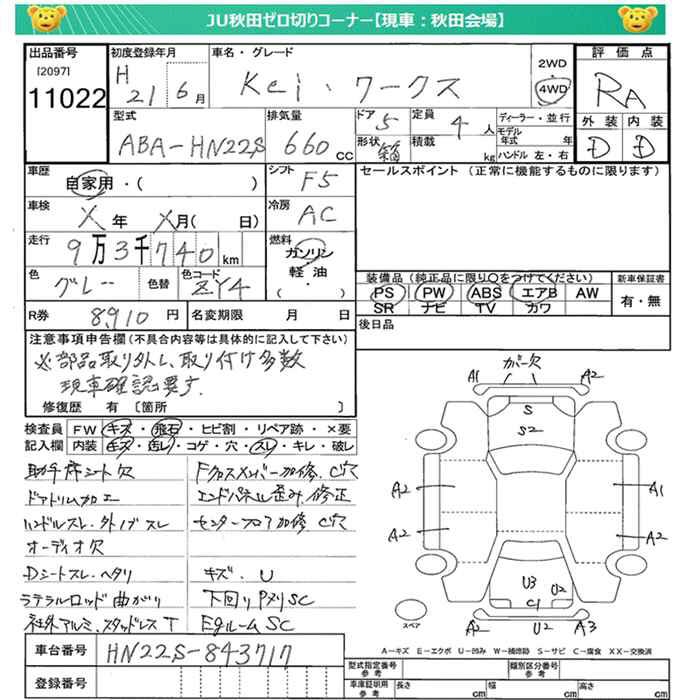 JU秋田ゼロ切りコーナー【現車：秋田会場】
出品番号
[2097]
11022
初度登録年月
H 21 6月
車名・グレード
Kei・ワークス
2WD
4WD
評価点
RA
型式
ABA-HN22S
排気量
660 cc
ドア 5
形状 箱
定員 4 人
積載 kg
ディーラー・並行
モデル年式 年
ハンドル 左・右
外装 内装
D D
車歴
自家用・( )
シフト F5
セールスポイント (正常に機能するものに限ります)
車検 X年 X月( 日)
冷房 AC
走行 9万3千740km
燃料
ガソリン
軽油
( )
色 グレー 色替
色コード ZY4
装備品 (純正品に限り○をつけてください)
PS PW ABS エアB AW
SR ナビ TV カワ
新車保証書
有・無
R券 8,910 円
名変期限 月 日
後日品
注意事項申告欄 (不具合内容等は具体的に記入して下さい)
※部品取り外し、取り付け多数
現車確認要す.
修復歴 有 [箇所 ]
検査員記入欄
FW キズ・飛石・ヒビ割・リペア跡・×要
内装 キズ・汚レ・コゲ・穴・スレ・キレ・破レ
助手席シート欠
ドアトリム加工
ハンドルスレ.外ノブスレ
オーディオ欠
Dシートスレ.ヘタリ
ラテラルロッド曲がり
社外アルミ、スタッドレスT
Fクロスメンバー加修.C穴
エンドパネル歪み.修正
センターフロア加修 C穴
キズ.U
下回りPヌリSC
EgルームSC
カバー欠
A1 A2
S
S2
A2 A1
A2 A2
U3 U2
C1
A2 U2 A3
スペア
A－キズ E－エクボ U－凹み W－補修跡 S－サビ C－腐食 XX－交換済
車台番号 HN22S-843717
登録番号
型式指定番号 参考
類別区分番号 参考
車庫証明用 参考
長さ cm
幅 cm
高さ cm